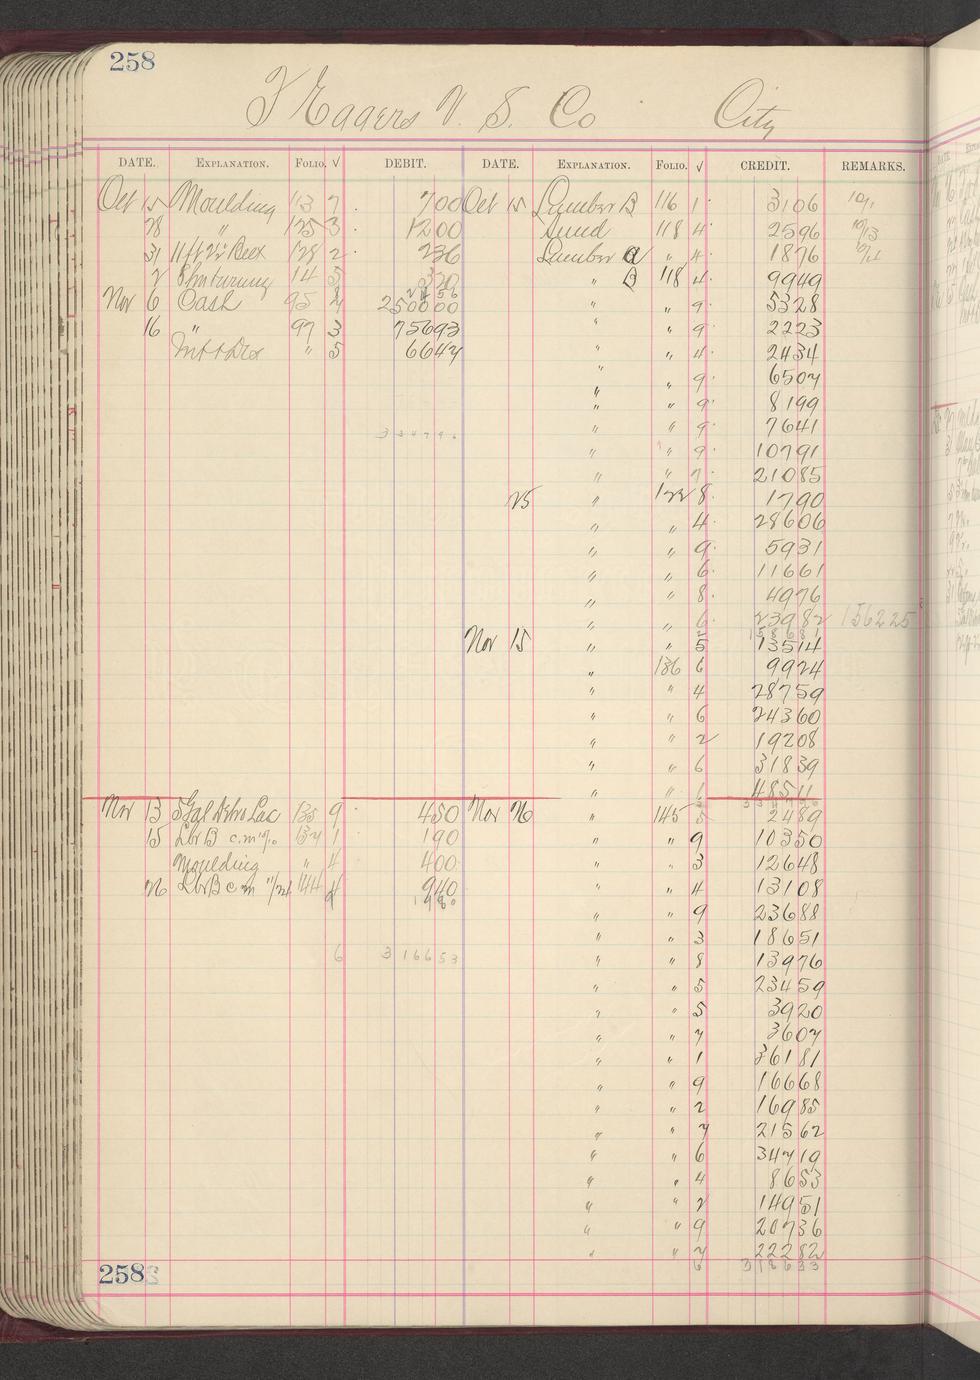 258
Co City
DATE. EXPLANATION. FOLIO. √ DEBIT. DATE. EXPLANATION. FOLIO. √ CREDIT. REMARKS.
Oct 15 Moulding 113 7 700 Oct 15 Lumber B 116 1 3106 10/1
28 " 125 3 1200 Sund 118 4 2596 10/13
31 128 2 236 Lumber " 4 1876
2 14 5 320 " B 118 4 9949
Nov 6 Cash 95 250000 " " 9 5328
16 " 97 3 75693 " " 9 2223
" 5 6647 " " 4 2434
" " 9 6507
" " 9 8199
334796 " " 9 7641
" " 9 10791
" " 7 21085
25 " 122 8 1790
" " 4 28606
" " 9 5931
" " 6 11661
" " 8 4976
" " 6 23982 156225
158681
Nov 15 " " 5 13514
" 136 6 9924
" " 4 28759
" " 6 24360
" " 2 19208
" " 6 31839
" " 1 48511
334796
Nov 13 5 Gal 135 9 450 Nov 26 " 145 5 2489
15 Lbr B 137 1 190 " " 9 10350
Moulding " 4 400 " " 3 12648
26 Lbr B cm 144 4 940 " " 4 13108
1980
" " 9 23688
" " 3 18651
6 316653 " " 8 13976
" " 5 23459
" " 5 3920
" " 7 3607
" " 1 36181
" " 9 16668
" " 2 16985
" " 7 21562
" " 6 34719
" " 4 8653
" " 2 14951
" " 9 20736
" " 7 22282
6 318633
258